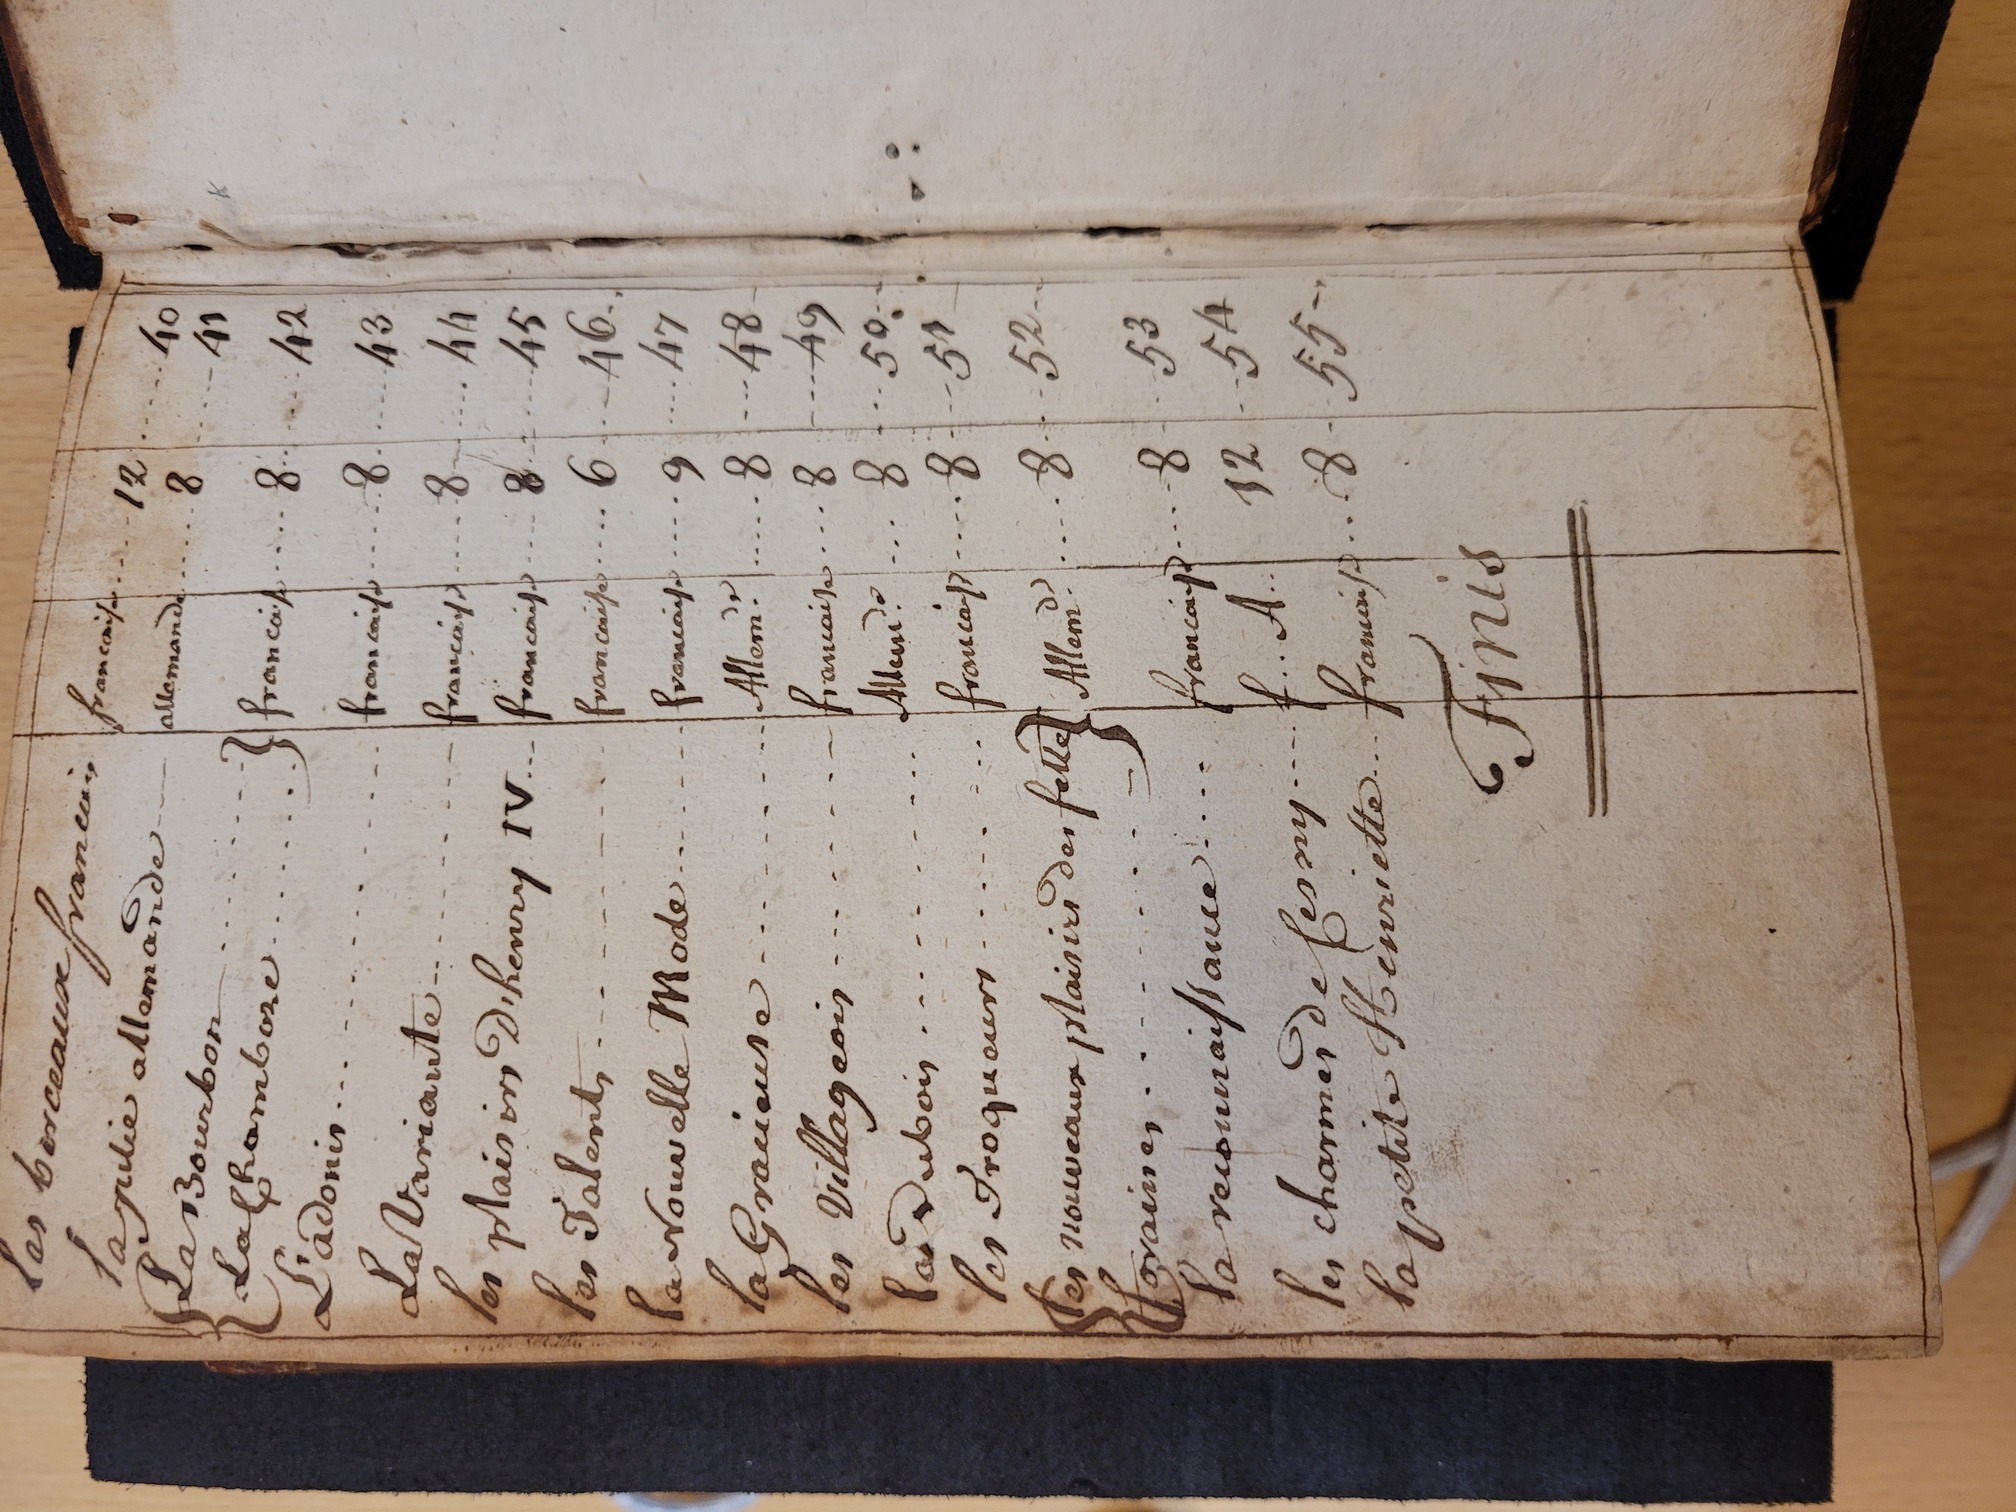 les berceaux francais francaise 12 40
la julie allemande allemande 8 41
La Bourbon
La Chambore francaise 8 42
L'adonis francaise 8 43
La Variante francaise 8 44
les plaisirs d'henry IV francaise 8 45
les Talents francaise 6 46
la Nouvelle Mode francaise 9 47
la Gracieuse Allemde 8 48
les Villageois francaise 8 49
la Dubois Allemde 8 50
les Troqueurs francaise 8 51
les nouveaux plaisirs des fettes Allemde 8 52
foraines
la reconnaissance francaise 8 53
les charmes de Cerny f. A. 12 54
la petite Henriette francaise 8 55
Finis